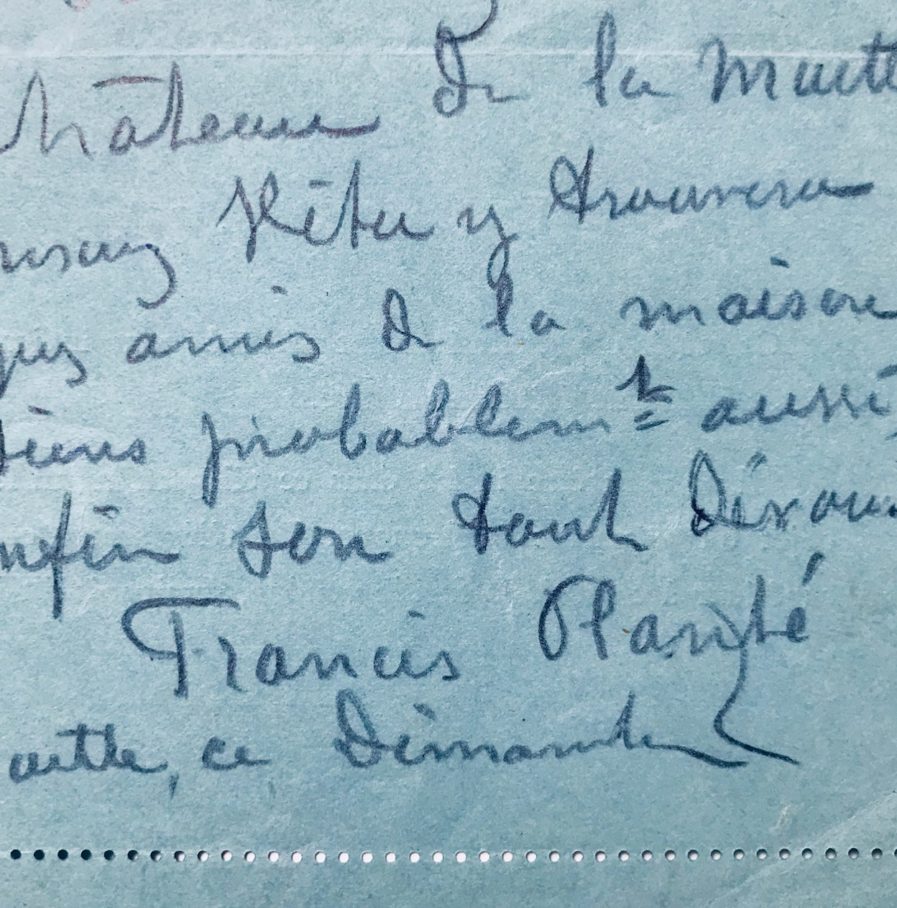 château de la Muett
Vêtu y trouvera
ques amis de la maison
tiens probablemt aussi,
nfin son tout Dévoué
Francis Planté
uette, ce Dimanche